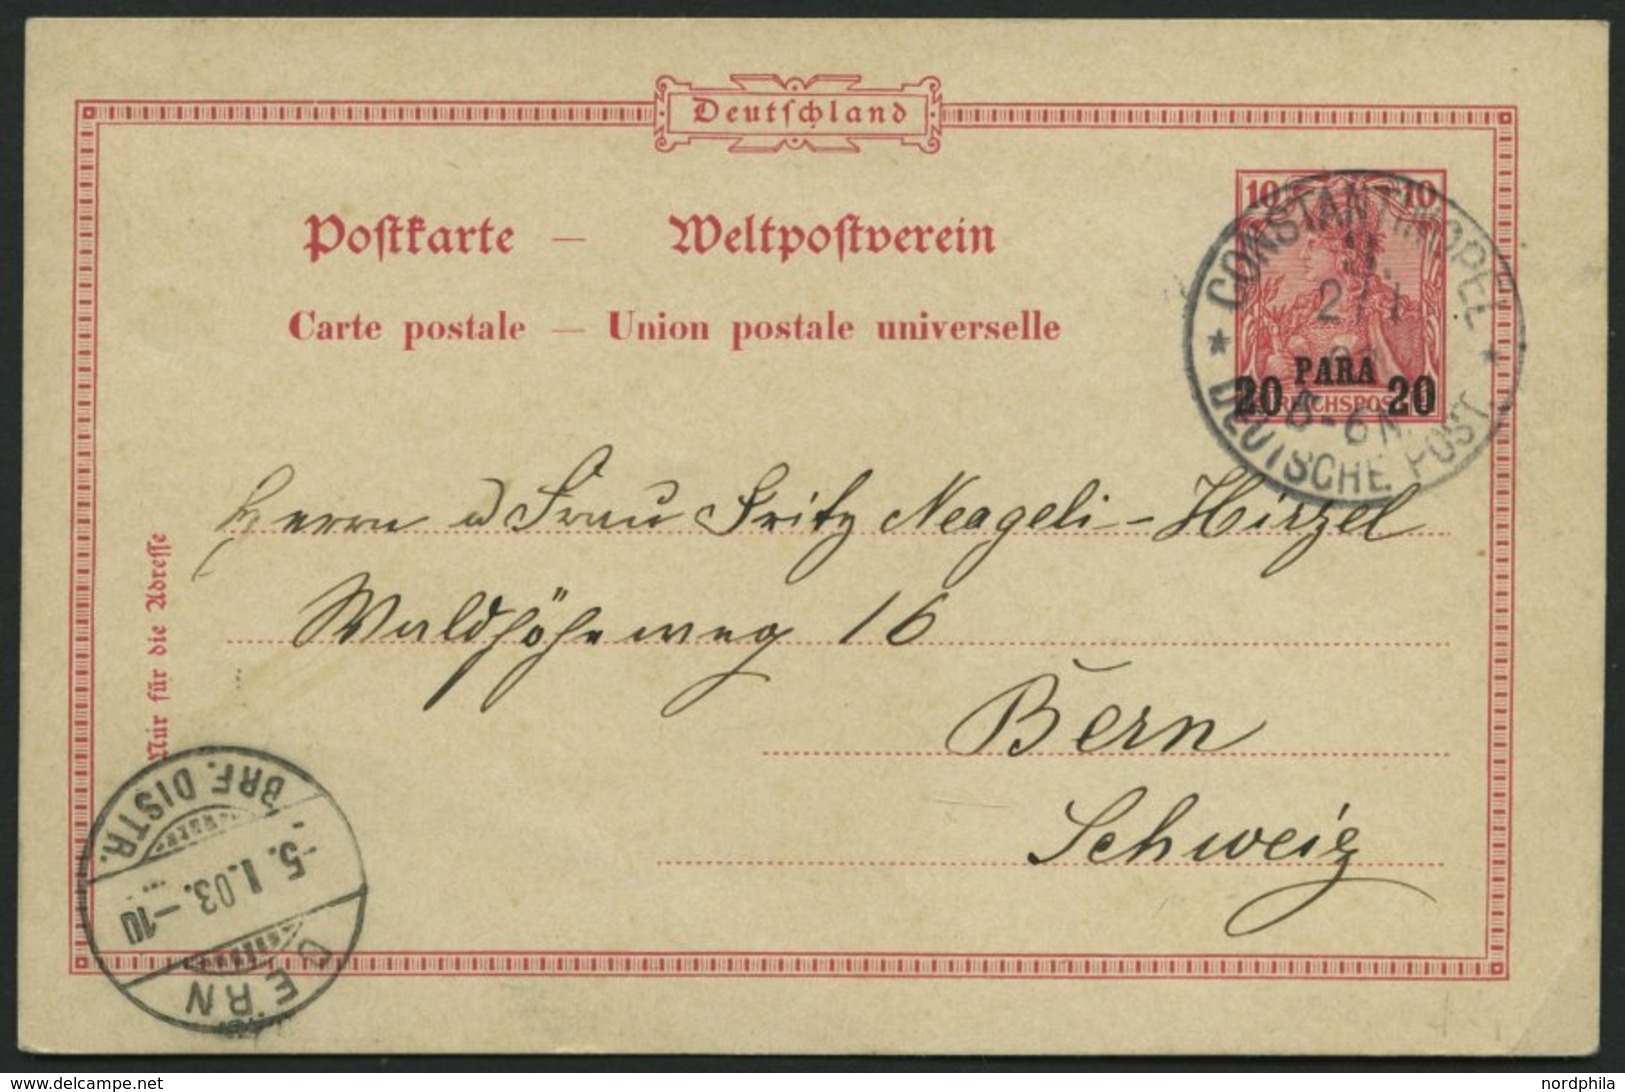 Deutschland
Postkarte — Weltpostverein
Carte postale — Union postale universelle
10 10
PARA
20 20
REICHSPOST
CONSTANTINOPEL
2/1
5-6 N.
DEUTSCHE POST.
Herrn u Frau Fritz Neageli-Hirzel
Waldhöheweg 16
Bern
Schweiz
Nur für die Adresse
BERN
-5.I.03.-10
BRF. DISTR.
www.delcampe.net
nordphila